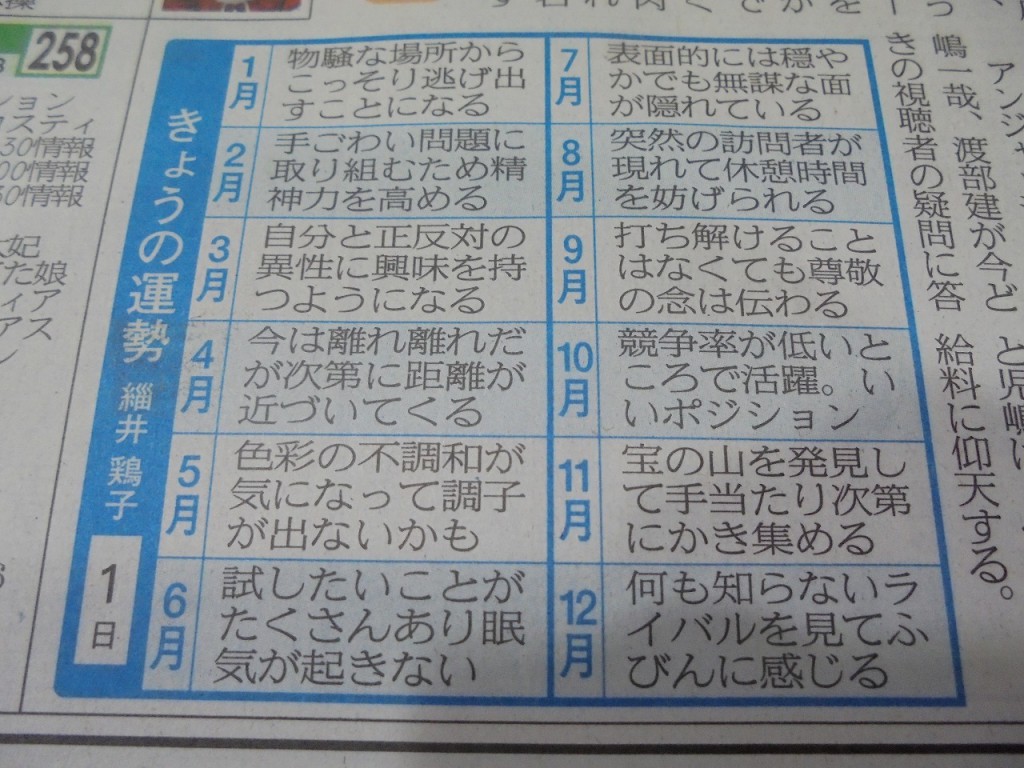 258
ション
スティ
30情報
00情報
30情報
妃
た娘
ィア
アス
ン
きょうの運勢
緇井 鶏子
1日
1月
物騒な場所から
こっそり逃げ出
すことになる
2月
手ごわい問題に
取り組むため精
神力を高める
3月
自分と正反対の
異性に興味を持
つようになる
4月
今は離れ離れだ
が次第に距離が
近づいてくる
5月
色彩の不調和が
気になって調子
が出ないかも
6月
試したいことが
たくさんあり眠
気が起きない
7月
表面的には穏や
かでも無謀な面
が隠れている
8月
突然の訪問者が
現れて休憩時間
を妨げられる
9月
打ち解けること
はなくても尊敬
の念は伝わる
10月
競争率が低いと
ころで活躍。い
いポジション
11月
宝の山を発見し
て手当たり次第
にかき集める
12月
何も知らないラ
イバルを見てふ
びんに感じる
アンジャ
嶋一哉、渡部建が今ど
きの視聴者の疑問に答
と児嶋は
給料に仰天する。